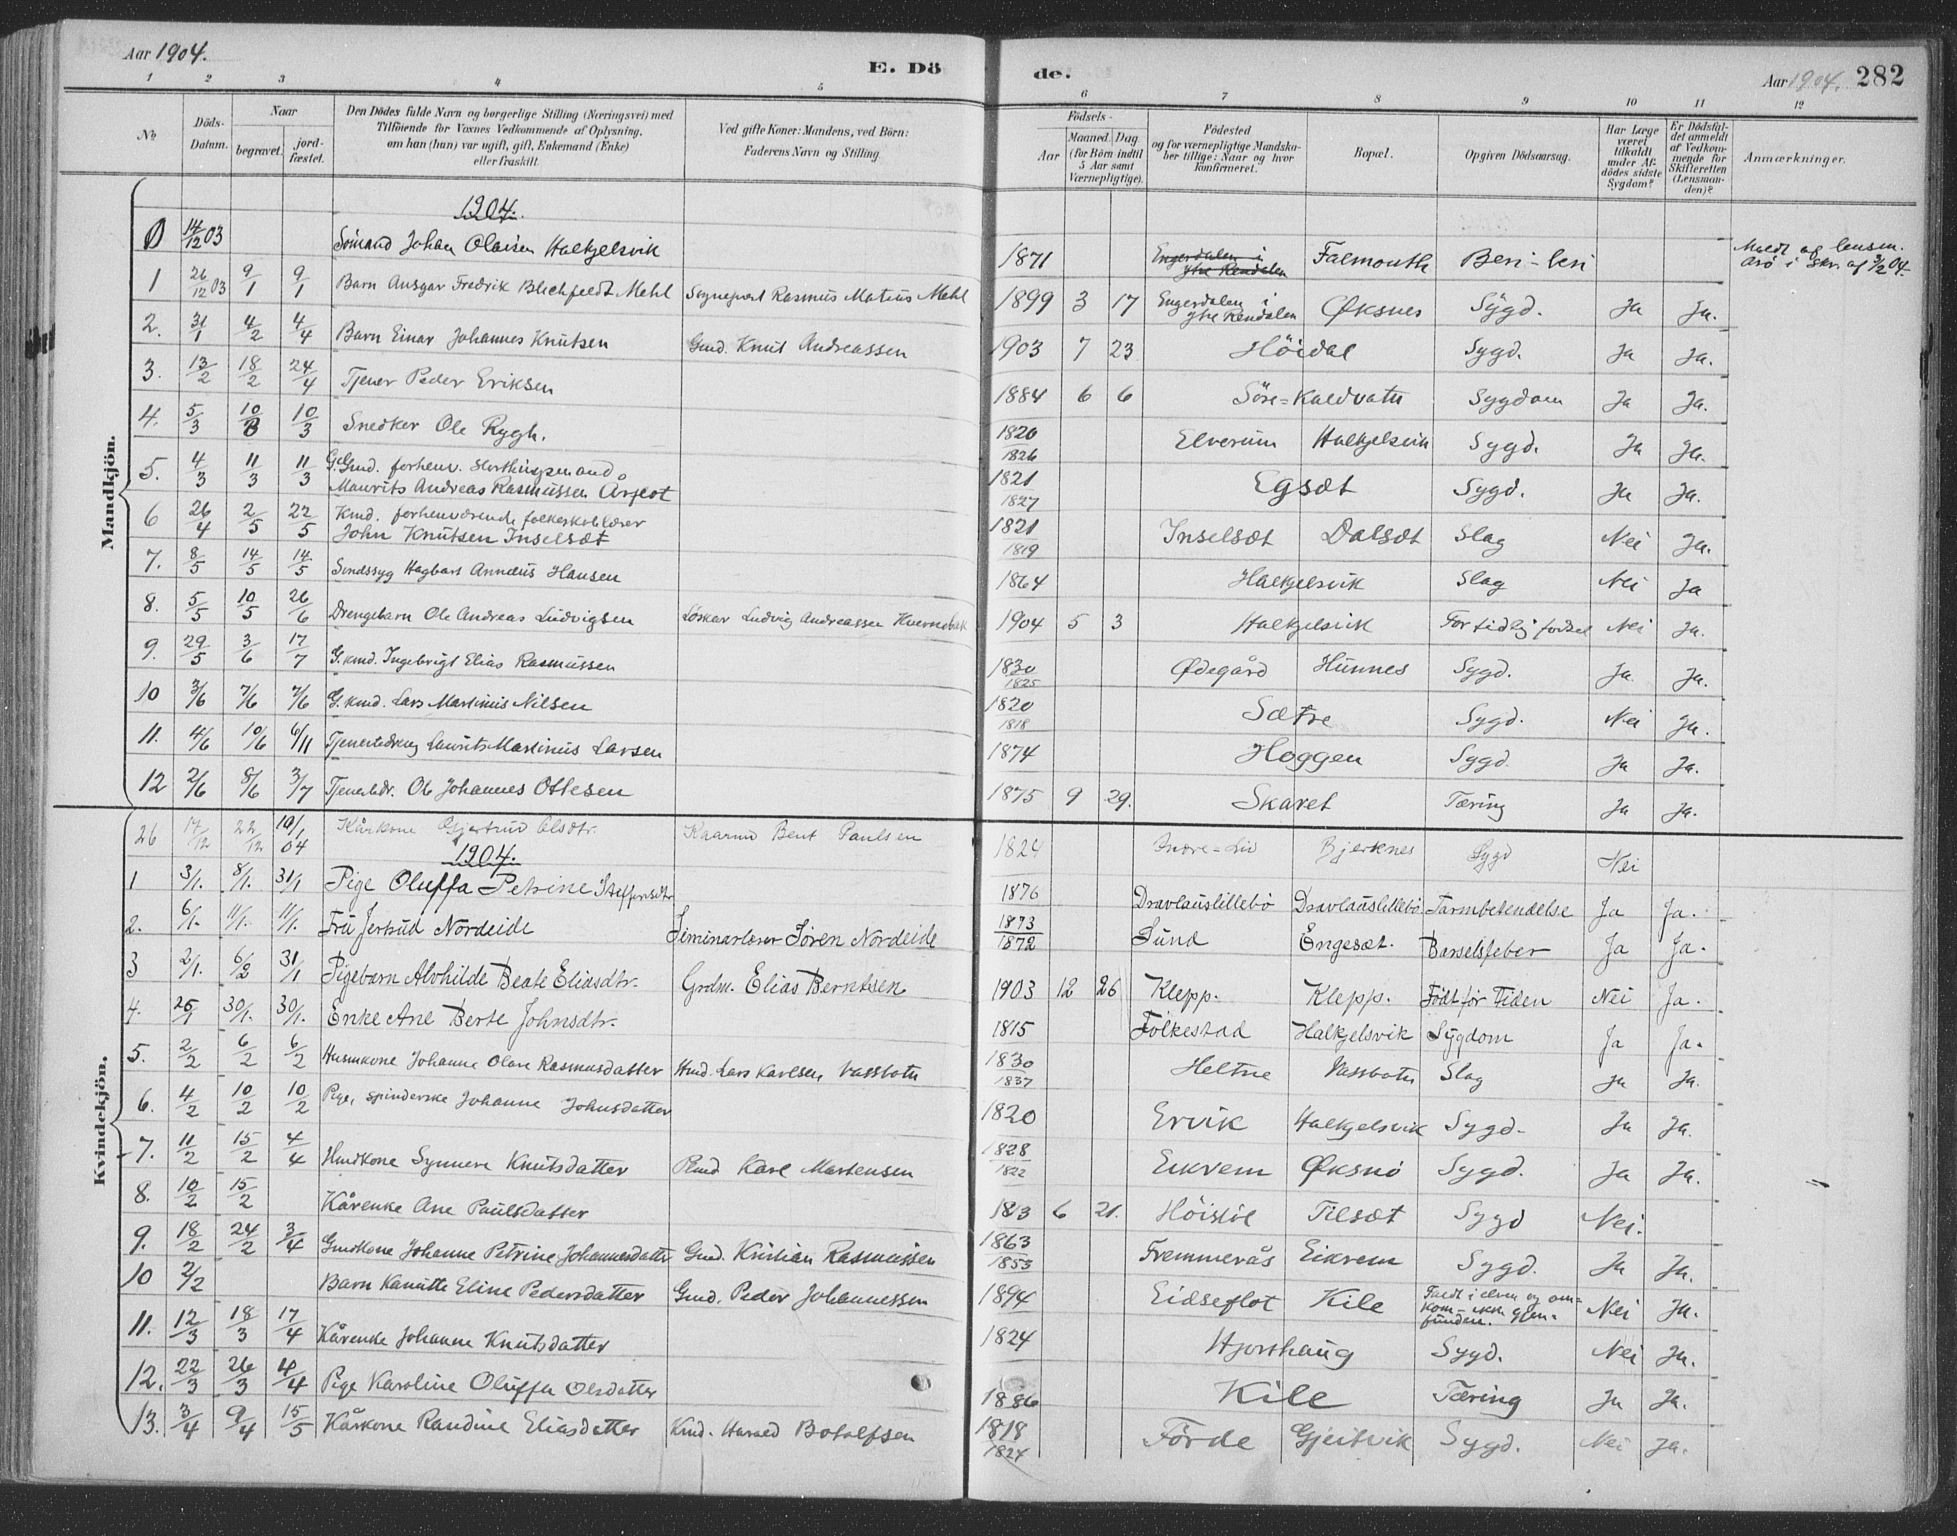 Aar 1904.
E. Dö
de.
Aar 1904. 282
1 2 3 4 5 6 7 8 9 10 11 12
No
Döds-Datum.
Naar
begravet.
jordfæstet.
Den Dödes fulde Navn og borgerlige Stilling (Næringsvei) med
Tilföiende for Voxnes Vedkommende af Oplysning,
om han (hun) var ugift, gift, Enkemand (Enke)
eller fraskilt.
Ved gifte Koner: Mandens, ved Börn:
Faderens Navn og Stilling.
Födsels-
Aar
Maaned. Dag.
(for Börn indtil
5 Aar samt
Værnepligtige).
Födested
og for værnepligtige Mandskaber tillige: Naar og hvor
konfirmeret.
Bopæl.
Opgiven Dödsaarsag.
Har Læge
været
tilkaldt
under Afdödes sidste
Sygdom?
Er Dödsfaldet anmeldt
af Vedkommende for
Skifteretten
(Lensmanden)?
Anmærkninger.
Mandkjön.
1904.
0 14/12 03 Sömand Johan Olaisen Halkjelsvik 1871 Engerdalen i Ytre Rendalen Falmouth Beri-beri Meldt af lensm. Arö i Skr. af 3/2 04.
1 26/12 03 9/1 9/1 Barn Ansgar Fredrik Blechfeldt Mehl Sognepræst Rasmus Matius Mehl 1899 3 17 Engerdalen i Ytre Rendalen Øksnes Sygd. Ja Ja.
2. 31/1 4/2 4/4 Barn Einar Johannes Knutsen Gmd. Knut Andreassen 1903 7 23 Höidal Sygd. Ja Ja.
3. 13/2 18/2 24/4 Tjener Peder Eriksen 1884 6 6 Söre-Kaldvatn Sygdom Ja Ja.
4. 5/3 10/3 10/3 Snedker Ole Rygh. 1820 1826 Elverum Halkjelsvik Sygd. Ja Ja.
5. 4/3 11/3 11/3 G. Gmd. forhenv. Storthingsmand
Maurits Andreas Rasmussen Årflot 1821 1827 Egsæt Sygd. Ja Ja.
6 26/4 2/5 22/5 Kmd. forhenværende folkeskolelærer
John Knutsen Inselsæt 1821 1819 Inselsæt Dalsæt Slag Nei Ja.
7. 8/5 14/5 14/5 Sindssyg Hagbart Annæus Hansen 1864 Halkjelsvik Slag Nei Ja
8. 5/5 10/5 26/6 Drengebarn Ole Andreas Ludvigsen Löskar Ludvig Andreassen Kvernebak 1904 5 3 Halkjelsvik For tidlig fødsel Nei Ja.
9. 29/5 3/6 17/7 G. kmd. Ingebrigt Elias Rasmussen 1830 1825 Ødegård Hunnes Sygd. Ja Ja.
10 3/6 7/6 7/6 G. kmd. Lars Martinus Nilsen 1820 1818 Sætre Sygd. Nei Ja.
11. 4/6 10/6 6/11 Tjenestedreng Laurits Martinus Larsen 1874 Hoggen Sygd. Ja Ja.
12 2/6 8/6 3/7 Tjenestedr. Ole Johannes Ottesen 1875 9 29. Skaret Tæring Ja Ja.
Kvindekjön.
26 17/12 22/12 10/1 04 Kårkone Gjertrud Olsdtr. Kaarmd Bent Paulsen 1824 Indre-Lid Bjerknes Sygd Nei
1904.
1 3/1. 8/1. 31/1 Pige Oluffa Petrine Steffensdtr. 1876 Dravlauslillebö Dravlauslillebö Tarmbetendelse Ja Ja.
2. 6/1. 11/1. 11/1. Fru Jertrud Nordeide Seminarlærer Sören Nordeide 1873 1872 Sund Engesæt. Barselsfeber Ja Ja.
3 2/1. 6/2 31/1 Pigebarn Alvhilde Beate Eliasdtr. Grdm. Elias Berntsen 1903 12 26 Klepp. Klepp. Født før Tiden Nei Ja.
4. 25/1 30/1. 30/1. Enke Ane Berte Johnsdtr. 1815 Folkestad Halkjelsvik Sygdom Ja Ja.
5. 2/2 6/2 6/2 Husmkone Johanne Olave Rasmusdatter Hmd. Lars Karlsen Vassbotn 1830 1837 Heltne Vassbotn Slag Ja Ja.
6. 4/2 10/2 10/2 Pige, spinderske Johanne Johnsdatter 1820 Ervik Halkjelsvik Sygd. Ja Ja.
7. 11/2 15/2 4/4 Hmdkone Synnøve Knutsdatter Plmd Karl Martensen 1828 1822 Eikrem Øksnö Sygd. Ja Ja.
8. 10/2 15/2 Kårenke Ane Paulsdatter 1813 6 21. Höislöl Tilsæt Sygd Nei.
9. 18/2 24/2 3/4 Gmdkone Johanne Petrine Johannesdatter Gmd. Kristian Rasmussen 1863 1853 Fremmerås Eikrem Sygd. Ja Ja.
10 2/2 Barn Kanutte Eline Pedersdatter Gmd. Peder Johannessen 1894 Eidseflot Kile Faldt i elven og omkom - ikke gjenfunden. Nei Ja.
11. 12/3 18/3 17/4 Kårenke Johanne Knutsdatter 1824 Hjorthaug Sygd. Nei Ja.
12. 22/3 26/3 4/4 Pige Karoline Oluffa Olsdatter 1886 Kile Tæring Ja Ja.
13. 3/4 9/4 15/5 Kårkone Randine Eliasdatter Kmd. Harald Botolfsen 1818 1824 Förde Gjeitvik Sygd. Nei Ja.